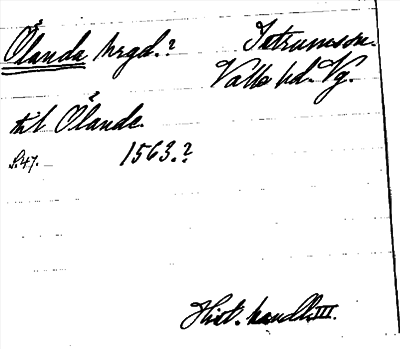 Ölanda hrgd.? Istrumssn.
Valle hd. Vg.
till Ölande.
s. 47. 1563.?
Hist. handl. III.